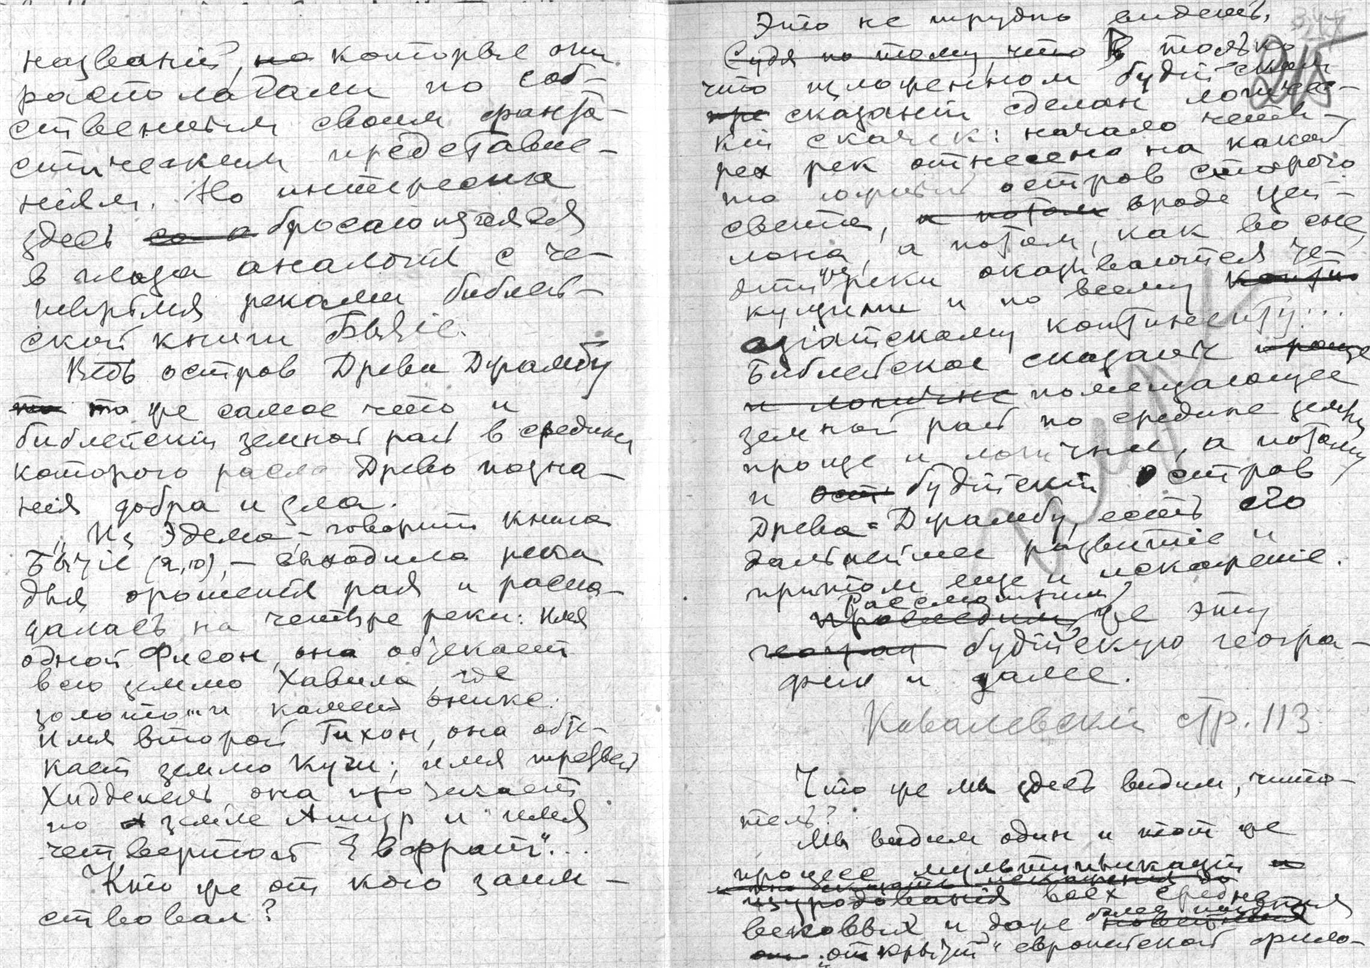 названій, но которые они
располагали по соб-
ственным своим фанта-
стическим представле-
ніям. Но интересна
здесь бросающаяся
в глаза аналогія с че-
тырьмя реками библей-
ской книги Бытіе.
Ведь остров Древа Дзамбу
то же самое что и
библейскій земной рай в средине
которого расло Древо позна-
нія добра и зла.
„Из Эдема – говорит книга
Бытіе (2,10), – выходила река
для орошенія рая и распа-
далась на четыре реки: имя
одной Фисон, она обтекает
всю землю Хавила где
золото и камень оникс.
Имя второй Гихон, она обте-
кает землю Куш; имя третьей
Хиддекель, она протекает
по земле Ашур и имя
четвертой Евфрат"...
Кто же от кого заим-
ствовал?
Это не трудно видеть.
Судя по тому, что В только
что изложенном будійском
сказаніи сделан логичес-
кій скачек: начало четы-
рех рек отнесено на какой
то южный остров старого
света, и потом вроде Цей-
лона, а потом, как во сне,
эти же реки оказываются те-
кущими и по всему
азіатскому континенту...
Библейское сказаніе проще
и логичнее помещающее
земной рай по средине земли
проще и логичнее, а потому
и будійскій остров
Древа-Дзамбу, есть его
дальнейшее развитіе и
притом еще и искаженіе.
Рассмотрим
Проследим же эту
географ будійскую геогра-
фію и далее.
Ковалевскій стр. 113
Что же мы здесь видим, чита-
тель?
Мы видим один и тот же
процесс мультипликаціи и
всех средне-
вековых и даже более поздних
„открытій" европейской фило-